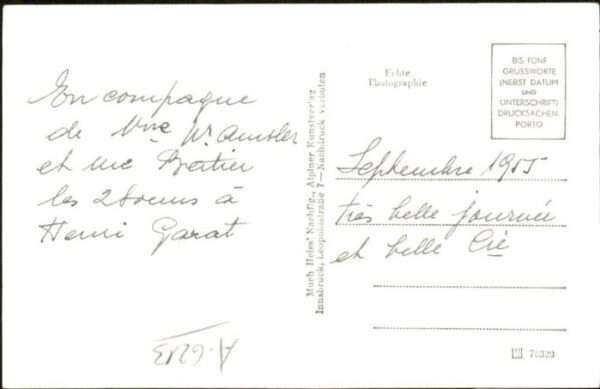 En compagne
de Mme W. Amsler
et me Bertier
les 2 sœurs à
Henri Garat
A-6213
Much Heiss' Nachflg., Alpiner Kunstverlag
Innsbruck, Leopoldstraße 7 — Nachdruck verboten
Echte
Photographie
BIS FÜNF
GRUSSWORTE
(NEBST DATUM
UND
UNTERSCHRIFT)
DRUCKSACHEN-
PORTO
Septembre 1955
très belle journée
et belle Cie
70323